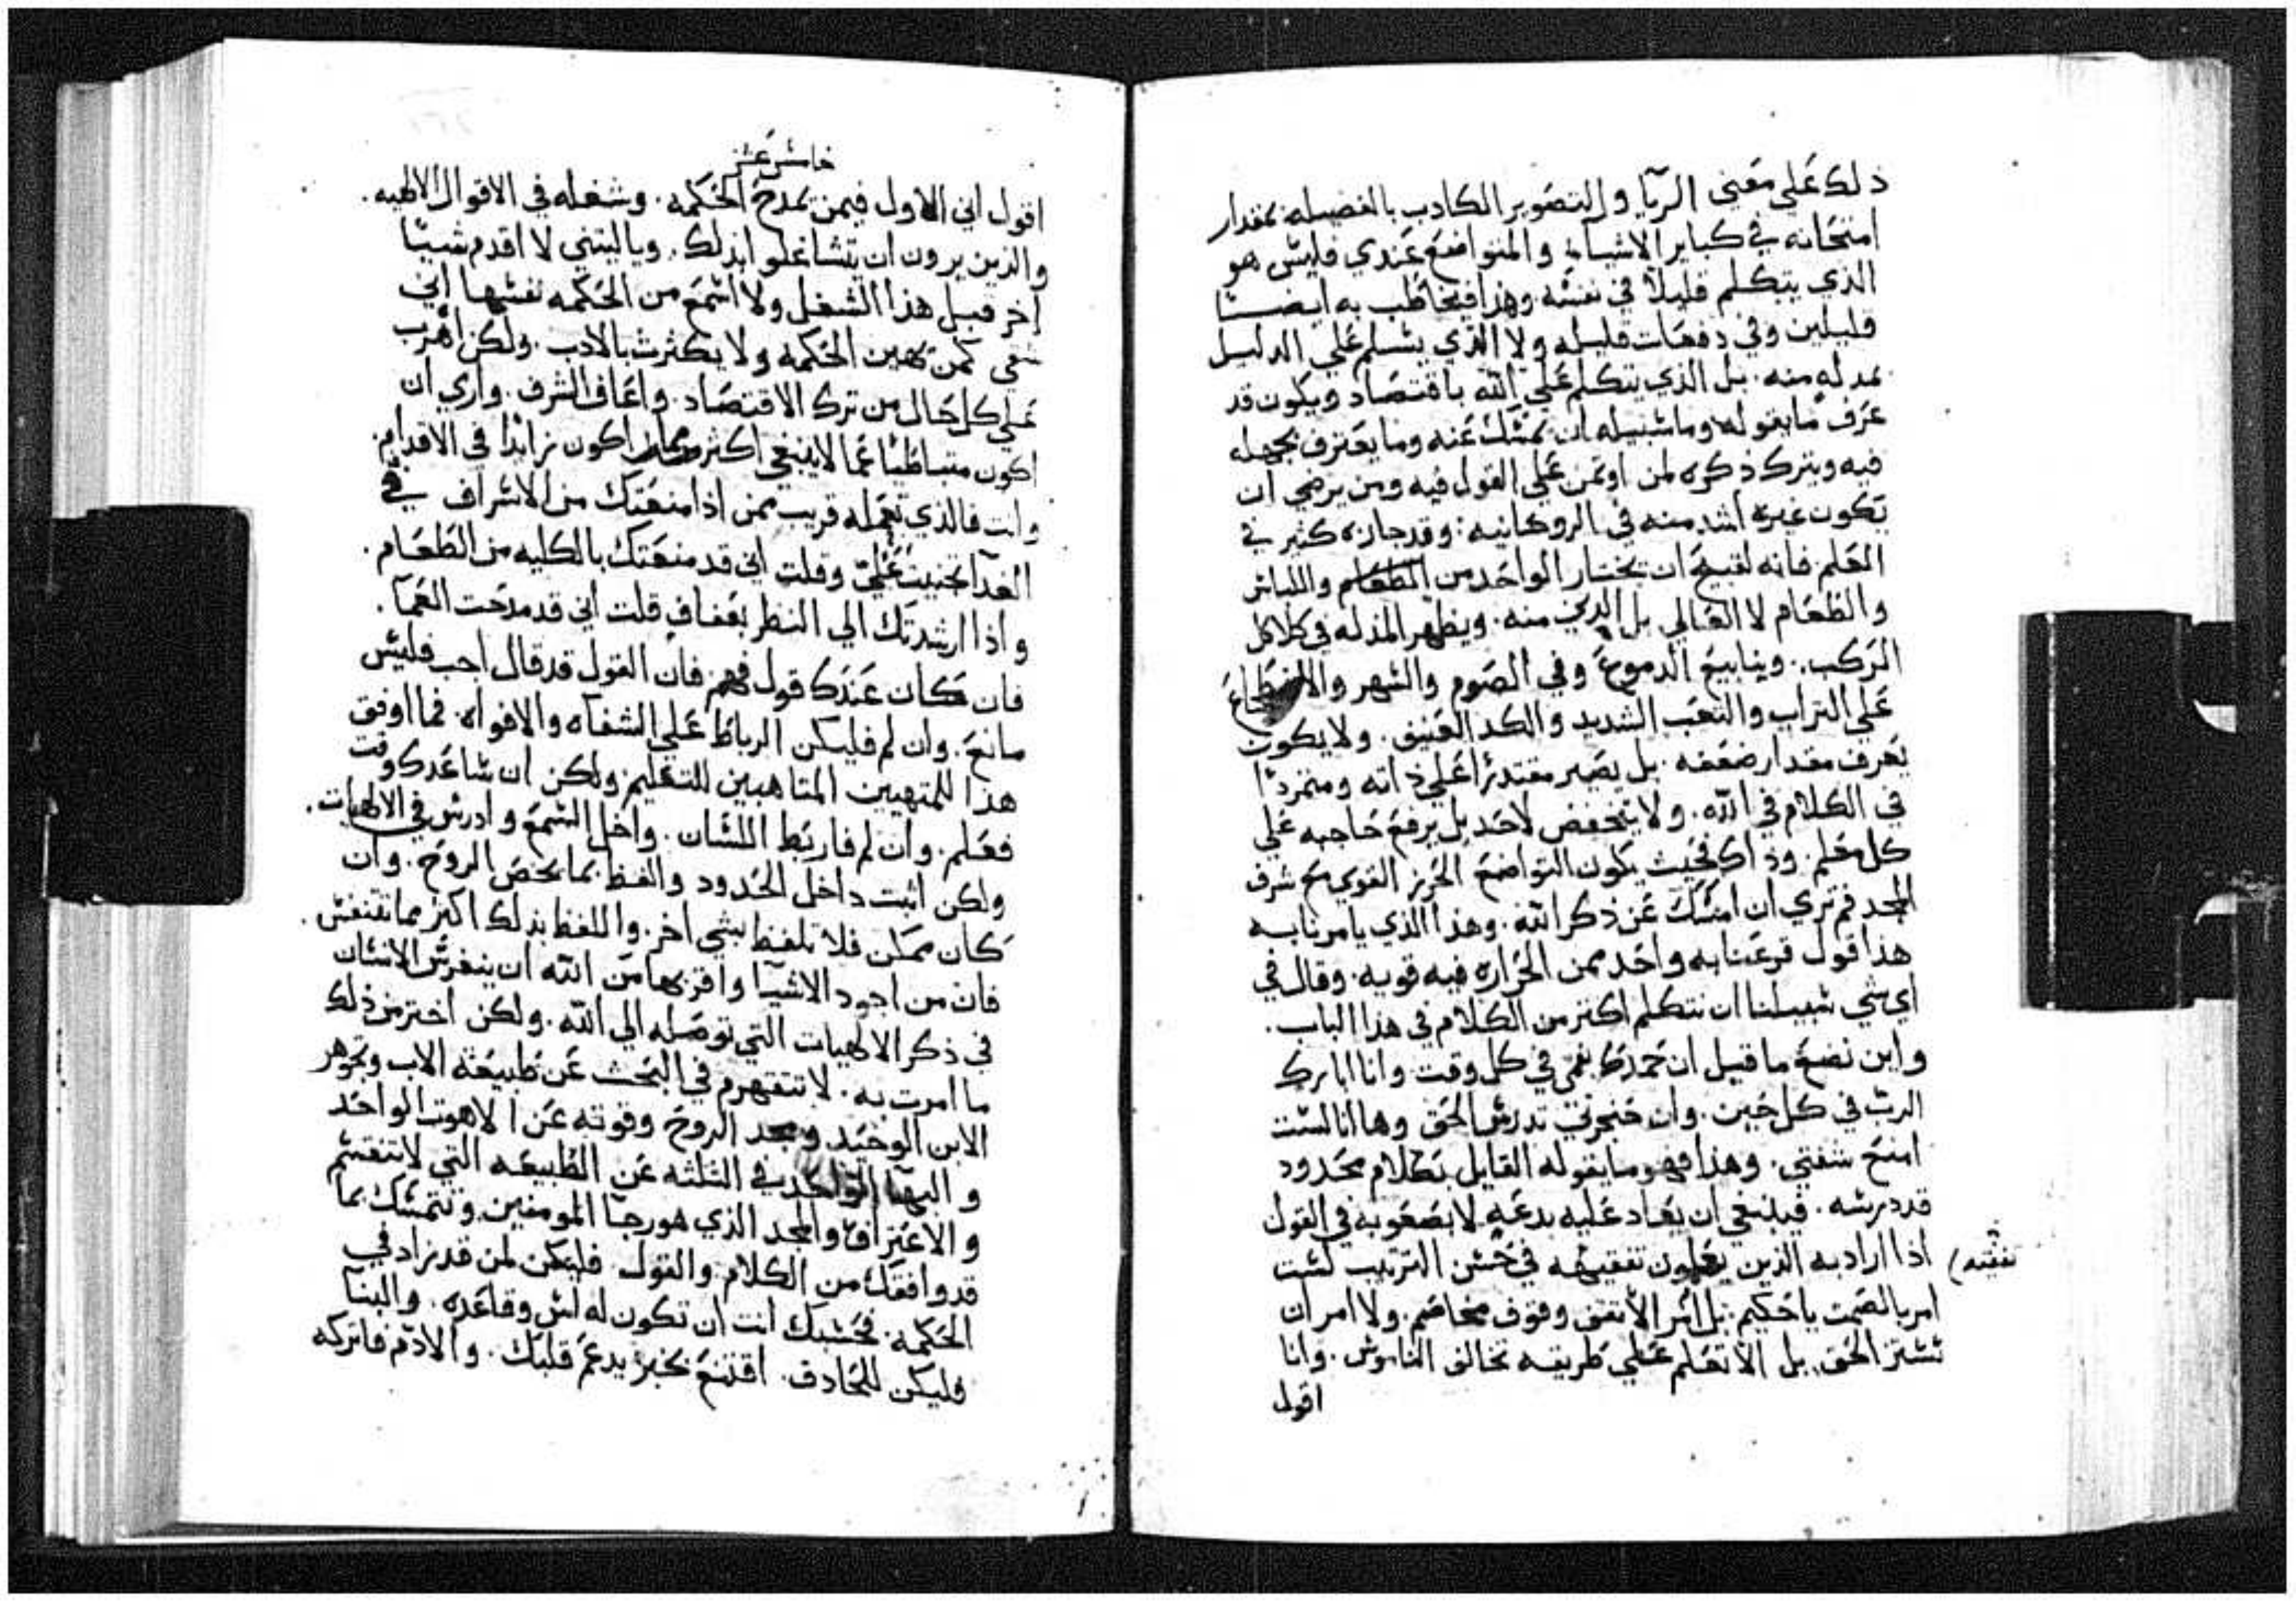 ذلك على معنى الريا والتصوير الكادب بالفضيله بمقدار
امتحانه في كباير الاشياء والمتواضع عندي فليس هو
الذي يتكلم قليلا في نفسه وهذا فيخاطب به ايضا
قليلين وفي دفعات قليله ولا الذي يسلم علي الدليل
بمدله منه. بل الذي يتكلم علي الله باقتصاد ويكون قد
عرف ما يقوله وما سبيله ان يمسك عنه وما يعترف بجهله
فيه ويترك ذكره لمن اوتمن علي القول فيه ومن يرضي ان
يكون غيره اشد منه في الروحانيه. وقد جازه كثير في
العلم فانه لقبيح ان يختار الواحد من المطعم واللباس
والطعام لا الغالي بل الدني منه. ويظهر المذله في كلا كل
الركب. وينابيع الدموع وفي الصوم والسهر والاضطجاع
علي التراب والتعب الشديد والكد العنيف. ولا يكون
يعرف مقدار ضعفه. بل يصير مقتدرا علي ذاته ومتمردا
في الكلام في الله. ولا يتخفض لاحد بل يرفع حاجبه علي
كل معلم. وذاك فحيث يكون التواضع الحريز القوي مع شرف
المجد فم تري ان امسك عن ذكر الله. وهذا الذي يامرنا به
هذا قول قرعنا به واحد ممن الحراره فيه قويه. وقال في
اي شي سبيلنا ان نتكلم اكتر من الكلام في هذا الباب.
واين نضع ما قيل ان حمدك بفمي في كل وقت وانا ابارك
الرب في كل حين. وان حنجرتي تدرس الحق وها انا لست
امنع شفتي. وهذا فهو ما يقوله القايل بكلام محدود
قد درسه. فينبغي ان يعاد عليه بدعه لا بصعوبه في القول
اذا اراد به الذين يعلمون تفقيهه في حسن الترتيب لست
تفقته
امر بالصمت ياحكيم. بل امر الا تقف وقوف مخاصم. ولا امر ان
تستر الحق. بل الا تعلم علي طريقه تخالف الناموس. وانا
اقول
خامس عشر
اقول اني الاول فيمن يمدح الحكمه. وشغله في الاقوال الالهيه.
والذين يرون ان يتشاغلوا بذلك. ويا ليتني لا اقدم شيا
اخر قبل هذا الشغل ولا اسمع من الحكمه نفسها اني
شقي كمن يهين الحكمه ولا يكثرث بالادب. ولكن اهرب
علي كل حال من ترك الاقتصاد. واعاف الشرف. واري ان
اكون متباطيا عما لا ينبغي اكثر مما اكون زايدا في الاقدام.
وانت فالذي تعمله قريب ممن اذا منعتك من الاسراف في
الغدا تجنيت علي وقلت اني قد منعتك بالكليه من الطعام.
واذا ارشدتك الي النظر بعفاف قلت اني قد مدحت العما.
فان كان عندك قول فهم. فان القول قد قال اجب فليس
مانع. وان لم فليكن الرباط علي الشفاه والافواه. فما اوفق
هذا للمتهيين المتاهبين للتعليم ولكن ان ساعدك وقت
فعلم. وان لم فاربط اللسان. واخل السمع وادرس في الالهيات.
ولكن اثبت داخل الحدود والفظ بما يخص الروح. وان
كان ممكن فلا تلفظ بشي اخر. واللفظ بذلك اكثر مما تتنفس.
فان من اجود الاشيا واقربها من الله ان ينغرس الانسان
في ذكر الالهيات التي توصله الي الله. ولكن احترز من ذلك
ما امرت به. لا تتقهرم في البحث عن طبيعة الاب وجوهر
الابن الوحيد ومجد الروح وقوته عن الاهوت الواحد
والبها الواحد في الثلثه عن الطبيعه التي لا تنقسم
والاعتراف والمجد الذي هو رجا المومنين وتتمسك بما
قد وافقك من الكلام والقول. فليكن لمن قد زاد في
الحكمه. فحسبك انت ان تكون له اس وقاعده. والبنا
فليكن للحادق. اقتنع بخبز يدعم قلبك. والادم فاتركه